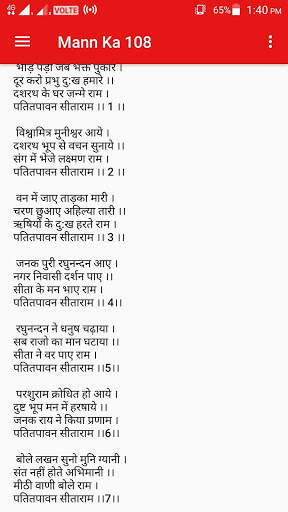 4G VOLTE 65% 1:40 PM
Mann Ka 108
भीड़ पड़ी जब भक्त पुकारे ।
दूर करो प्रभु दु:ख हमारे ।।
दशरथ के घर जन्मे राम ।
पतितपावन सीताराम ।। 1 ।।
विश्वामित्र मुनीश्वर आये ।
दशरथ भूप से वचन सुनाये ।।
संग में भेजे लक्ष्मण राम ।
पतितपावन सीताराम ।। 2 ।।
वन में जाए ताड़का मारी ।
चरण छुआए अहिल्या तारी ।।
ऋषियों के दु:ख हरते राम ।
पतितपावन सीताराम ।। 3 ।।
जनक पुरी रघुनन्दन आए ।
नगर निवासी दर्शन पाए ।।
सीता के मन भाए राम ।
पतितपावन सीताराम ।। 4।।
रघुनन्दन ने धनुष चढ़ाया ।
सब राजो का मान घटाया ।।
सीता ने वर पाए राम ।
पतितपावन सीताराम ।।5।।
परशुराम क्रोधित हो आये ।
दुष्ट भूप मन में हरषाये ।।
जनक राय ने किया प्रणाम ।
पतितपावन सीताराम ।।6।।
बोले लखन सुनो मुनि ग्यानी ।
संत नहीं होते अभिमानी ।।
मीठी वाणी बोले राम ।
पतितपावन सीताराम ।।7।।